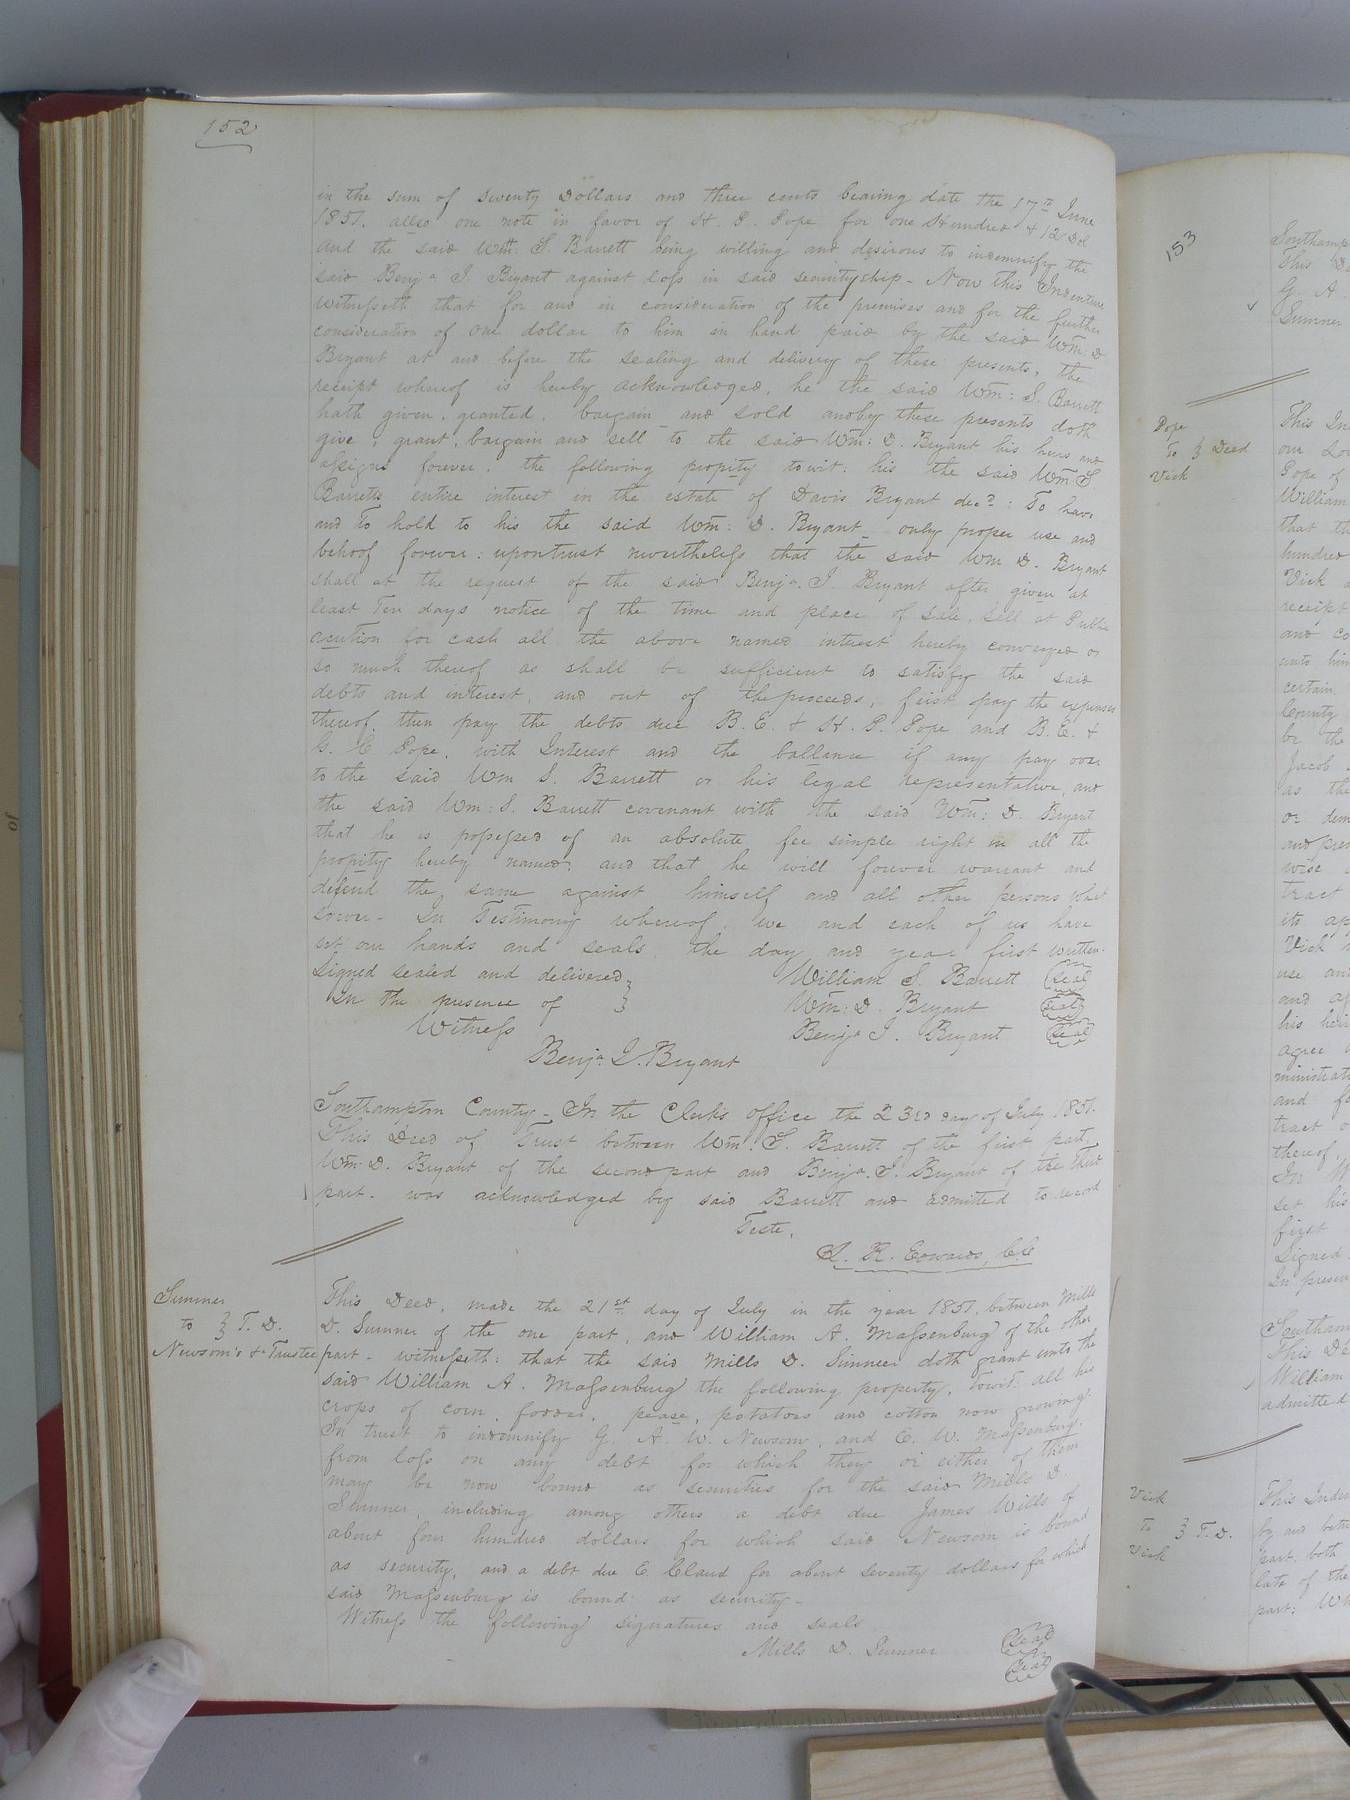 152
in the sum of Seventy Dollars and three cents bearing date the 17th June
1851. allso one note in favor of H. P. Pope for one Hundred & 12 Dol
and the said Wm: S. Barrett being willing and desirous to indemnify the
said Benja I. Bryant against loss in said securityship - Now this Indenture
Witnesseth that for and in consideration of the premises and for the further
consideration of one dollar to him in hand paid by the said Wm: D
Bryant at and before the sealing and delivery of these presents, the
receipt whereof is hereby acknowledged, he the said Wm: S. Barrett
hath given, granted, bargain and sold and by these presents doth
give, grant, bargain and sell to the said Wm: D. Bryant his heirs and
assigns forever, the following propity towit: his the said Wm S
Barretts entire interest in the estate of Davis Bryant decd: To have
and To hold to his the said Wm: D. Bryant only proper use and
behoof forever: upon trust nevertheless that the said Wm D. Bryant
shall at the request of the said Benja. I Bryant after given at
least Ten days notice of the time and place of sale, sell at Public
acution for cash all the above named interest hereby conveyed or
so much thereof as shall be sufficient to satisfy the said
debts and interest, and out of the proceeds, first pay the expenses
thereof, then pay the debts due B. E. & H. P. Pope and B. E. &
G. E Pope, with Interest and the ballance if any pay over
to the said Wm S. Barrett or his legal representative, and
the said Wm: S. Barrett covenant with the said Wm: D. Bryant
that he is possessed of an absolute fee simple right in all the
propity hereby named, and that he will forever warrant and
defend the same against himself and all other persons what
soever - In Testimony whereof, we and each of us have
set our hands and seals the day and year first written.
Signed sealed and delivered } William S. Barrett Seal
In the presence of } Wm: D. Bryant Seal
Witness Benja I. Bryant Seal
Benja. I. Bryant
Southampton County - In the Clerk's office the 23rd day of July 1851.
This Deed of Trust between Wm. S. Barrett of the first part,
Wm: D. Bryant of the second part and Benja. I. Bryant of the Third
part. was acknowledged by said Barrett and admitted to record
Teste,
L. R. Edwards, CC
Sumner
to } T. D.
Newsom's & Trustee
This Deed, made the 21st day of July in the year 1851, between Mills
D. Sumner of the one part, and William A. Massenburg of the other
part - witnesseth: that the said Mills D. Sumner doth grant unto the
said William A. Massenburg the following property, towit: all his
crops of corn, fodder, pease, potatoes and cotton now growing
In trust to indemnify G. A. W. Newsom, and C. W. Massenburg
from loss on any debt for which they or either of them
may be now bound as securities for the said Mills D.
Sumner, including among others a debt due James Wills of
about four hundred dollars for which said Newsom is bound
as security, and a debt due C. Claud for about seventy dollars for which
said Massenburg is bound as security -
Witness the following signatures and seals
Mills D. Sumner Seal
Seal
153
Southamp
This De
G. A.
Sumner
Pope
To } Deed
Vick
This In
our Lor
Pope of
William
that th
hundred
Vick
receipt
and co
unto him
certain
County
be the
Jacob
as the
or dem
and pre
wise
tract
its ap
Vick h
use and
and
his heir
agree
ministrat
and fo
tract o
thereof,
In W
set his
first
Signed
In presen
Southam
This De
William
admitted
Vick
to } T. D.
Vick
This Inde
by and betw
part, both
late of the
part: W